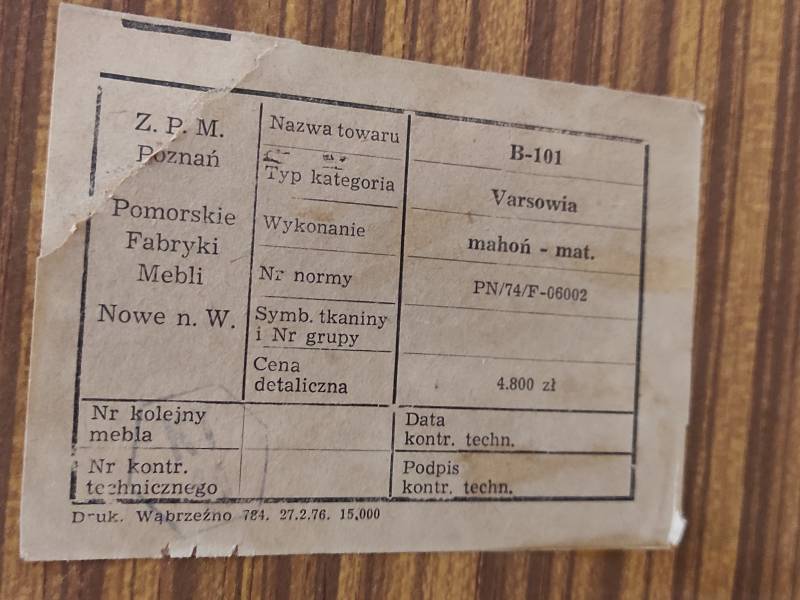 Z. P. M.
Poznań
Pomorskie
Fabryki
Mebli
Nowe n. W.
Nazwa towaru
B-101
Typ kategoria
Varsowia
Wykonanie
mahoń - mat.
Nr normy
PN/74/F-06002
Symb. tkaniny
i Nr grupy
Cena
detaliczna
4.800 zł
Nr kolejny
mebla
Data
kontr. techn.
Nr kontr.
technicznego
Podpis
kontr. techn.
Druk. Wąbrzeźno 784. 27.2.76. 15.000